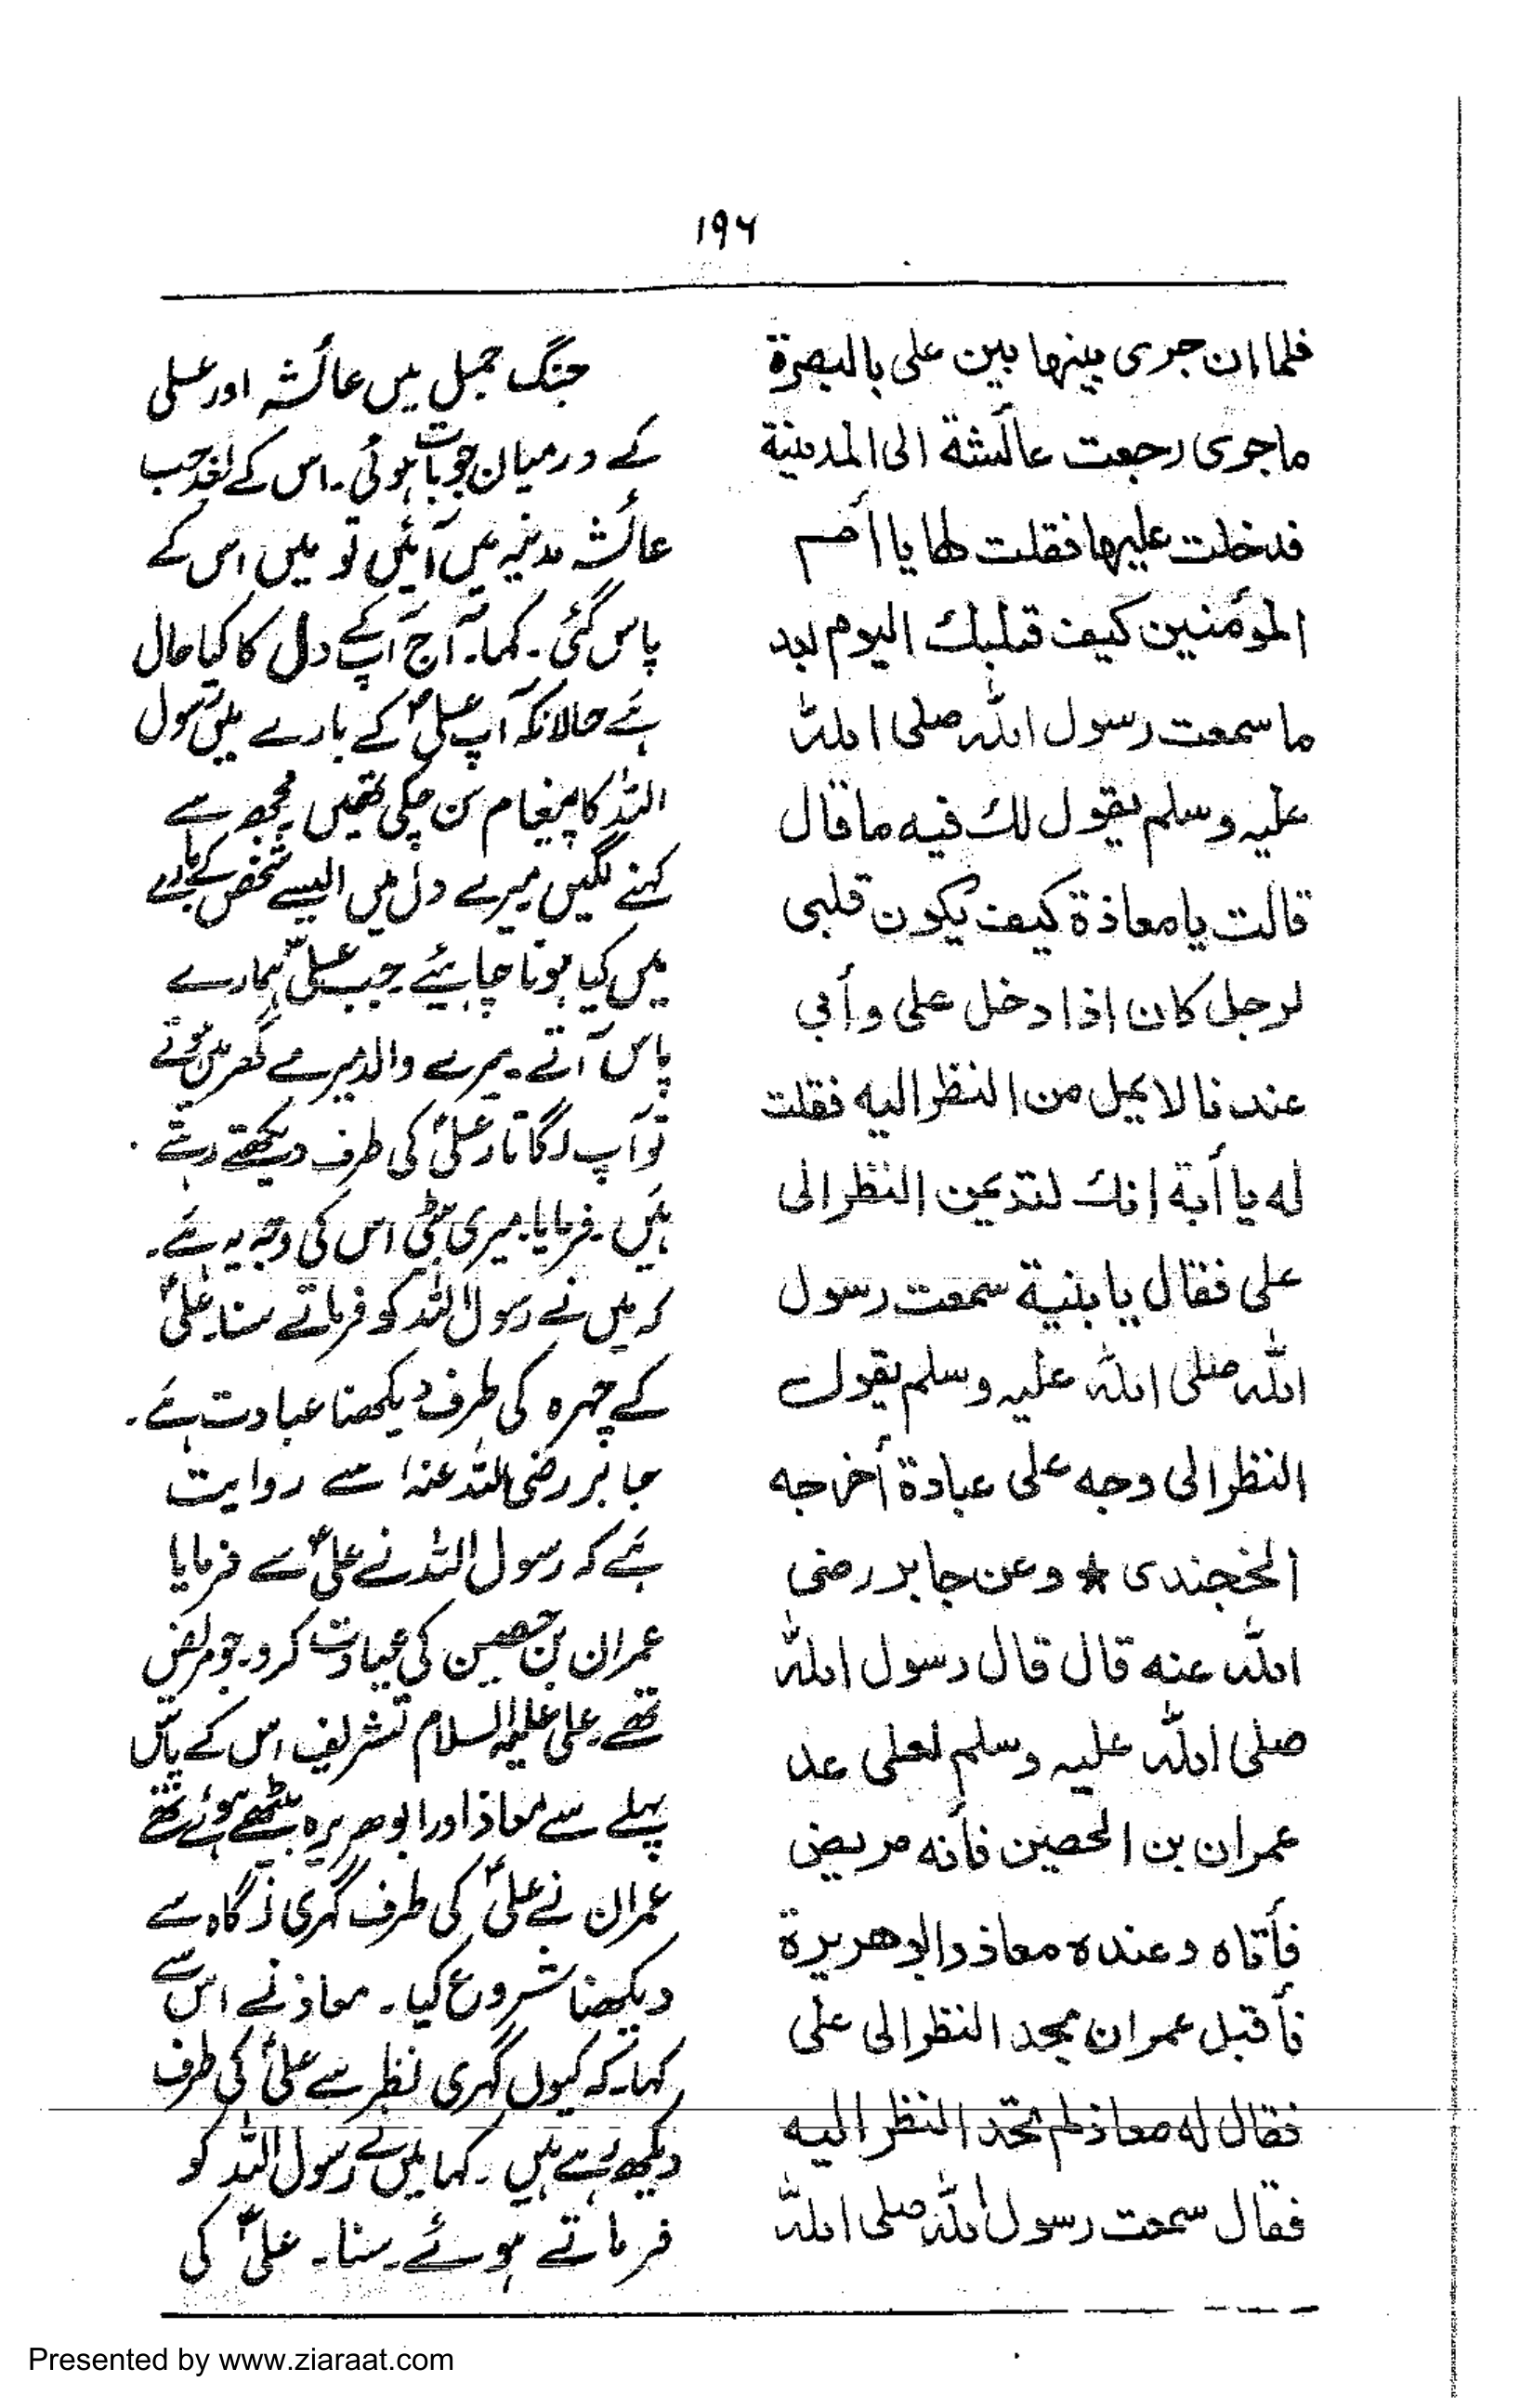 ۱۹۶
فلما ان جرى بينها بين على بالبصرة
ماجرى رجعت عائشة الى المدينة
فدخلت عليها فقلت لها يا أم
المؤمنين كيف قلبك اليوم بعد
ما سمعت رسول الله صلى الله
عليه وسلم يقول لك فيه ما قال
قالت يا معاذة كيف يكون قلبى
لرجل كان اذا دخل على وأبي
عندنا لا يميل من النظر اليه فقلت
له يا أبة انك لتديمن النظر الى
على فقال يا بنية سمعت رسول
الله صلى الله عليه وسلم يقول
النظر الى وجه على عبادة أخرجه
الخجندى ★ وعن جابر رضى
الله عنه قال قال رسول الله
صلى الله عليه وسلم لعلى عد
عمران بن الحصين فأنه مريض
فأتاه وعنده معاذ وابو هريرة
فأقبل عمران يحد النظر الى على
فقال له معاذ لم تحد النظر اليه
فقال سمعت رسول الله صلى الله
جنگ جمل میں عائشہ اور علی
کے درمیان جو بات ہوئی۔ اس کے بعد جب
عائشہ مدینہ میں آئیں تو میں اس کے
پاس گئی۔ کہا۔ آج آپ کے دل کا کیا حال
ہے حالانکہ آپ علیؑ کے بارے میں رسول
اللہ کا پیغام سن چکی تھیں۔ مجھ سے
کہنے لگیں میرے دل میں ایسے شخص کے بارے
میں کیا ہونا چاہیئے۔ جب علیؑ ہمارے
پاس آتے۔ میرے والد میرے گھر میں ہوتے
تو آپ لگاتار علیؑ کی طرف دیکھتے رہتے
ہیں۔ فرمایا۔ میری بیٹی اس کی وجہ یہ ہے۔
کہ میں نے رسول اللہ کو فرماتے سنا۔ علیؑ
کے چہرہ کی طرف دیکھنا عبادت ہے۔
جابر رضی اللہ عنہ سے روایت
ہے کہ رسول اللہ نے علیؑ سے فرمایا
عمران بن حصین کی عیادت کرو۔ جو مریض
تھے۔ علی علیہ السلام تشریف اس کے پاس
پہلے سے معاذ اور ابو ھریرہ بیٹھے ہوئے تھے
عمران نے علیؑ کی طرف گہری نگاہ سے
دیکھنا شروع کیا۔ معاذ نے اس سے
کہا۔ کہ کیوں گہری نظر سے علیؑ کی طرف
دیکھ رہے ہیں۔ کہا میں نے رسول اللہ کو
فرماتے ہوئے۔ سنا۔ علیؑ کی
Presented by www.ziaraat.com